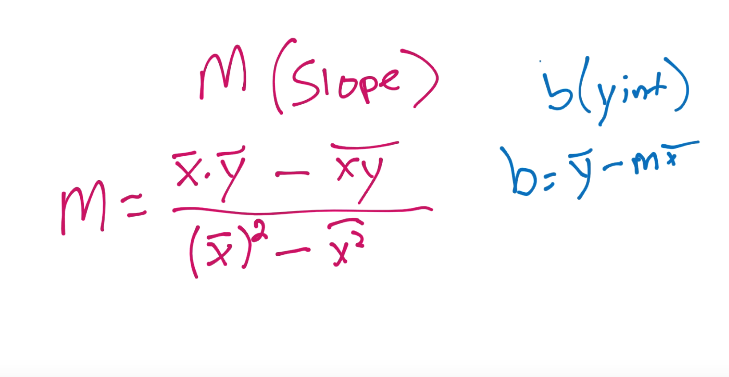 M (Slope)
m = (x̅·y̅ − x̅y̅) / ((x̅)² − x̅²)
b(yint)
b = y̅ − mx̅